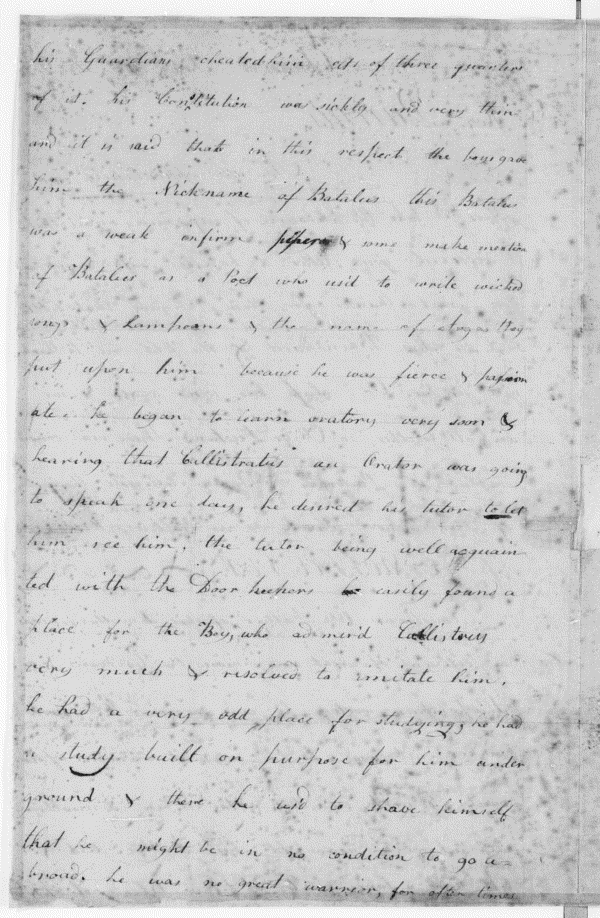 his Guardians cheated him out of three quarters
of it. his Constitution was sickly and very thin
and it is said that in this respect the boys gave
him the Nickname of Batalus this Batalus
was a weak enfirm pipere & some make mention
of Batalies as a Poet who us'd to write wicked
songs & Lampoons & the name of Argas they
put upon him because he was fierce & passion
ate. he began to learn oratory very soon &
hearing that Callistratus an Orator was going
to speak one day, he desired his tutor to let
him see him, the tutor being well acquain
ted with the Door keepers easily found a
place for the Boy, who admir'd Callistrus
very much & resolved to imitate him.
he had a very odd place for studying, he had
a study built on purpose for him under
ground & there he us'd to shave himself
that he might be in no condition to go a-
broad. he was no great warrior, for often times